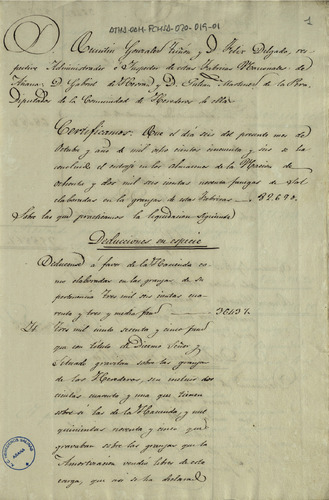 ATHA-DAH-FCMIA-070-019-01
1
D. Quintin Gonzalez y D. Felix Delgado, res-
pectivo Administrador e Inspector de estas Fabricas Nacionales de
Añana, D. Gabriel de y D. Julian Martinez de la Pera,
Diputados de la Comunidad de Herederos de ellas
Certificamos: Que el dia seis del presente mes de
Octubre y año de mil ocho cientos cincuenta y seis se
ha concluido el entrojo en los Almacenes de la Nacion de
ochenta y dos mil seis cientas noventa fanegas de Sal
elaboradas en las granjas de estas Fabricas 82.690.
Sobre las que practicamos la liquidacion siguiente
Deducciones en especie
Deducense á favor de la Hacienda co
mo elaboradas en las granjas de su
pertenencia tres mil seis cientas cua
renta y tres y media fan 3643½
Id. tres mil ciento sesenta y cinco fan
que con titulo de Diezmo Señor y
Situado gravitan sobre las granjas
de los Herederos sin incluir dos
cientas cuarenta y una que tienen
sobre si las de la Hacienda, y mil
quinientas noventa y cinco que
gravaban sobre las granjas que la
Amortizacion vendio libres de esta
carga, que asi se ha declarado
AÑANA